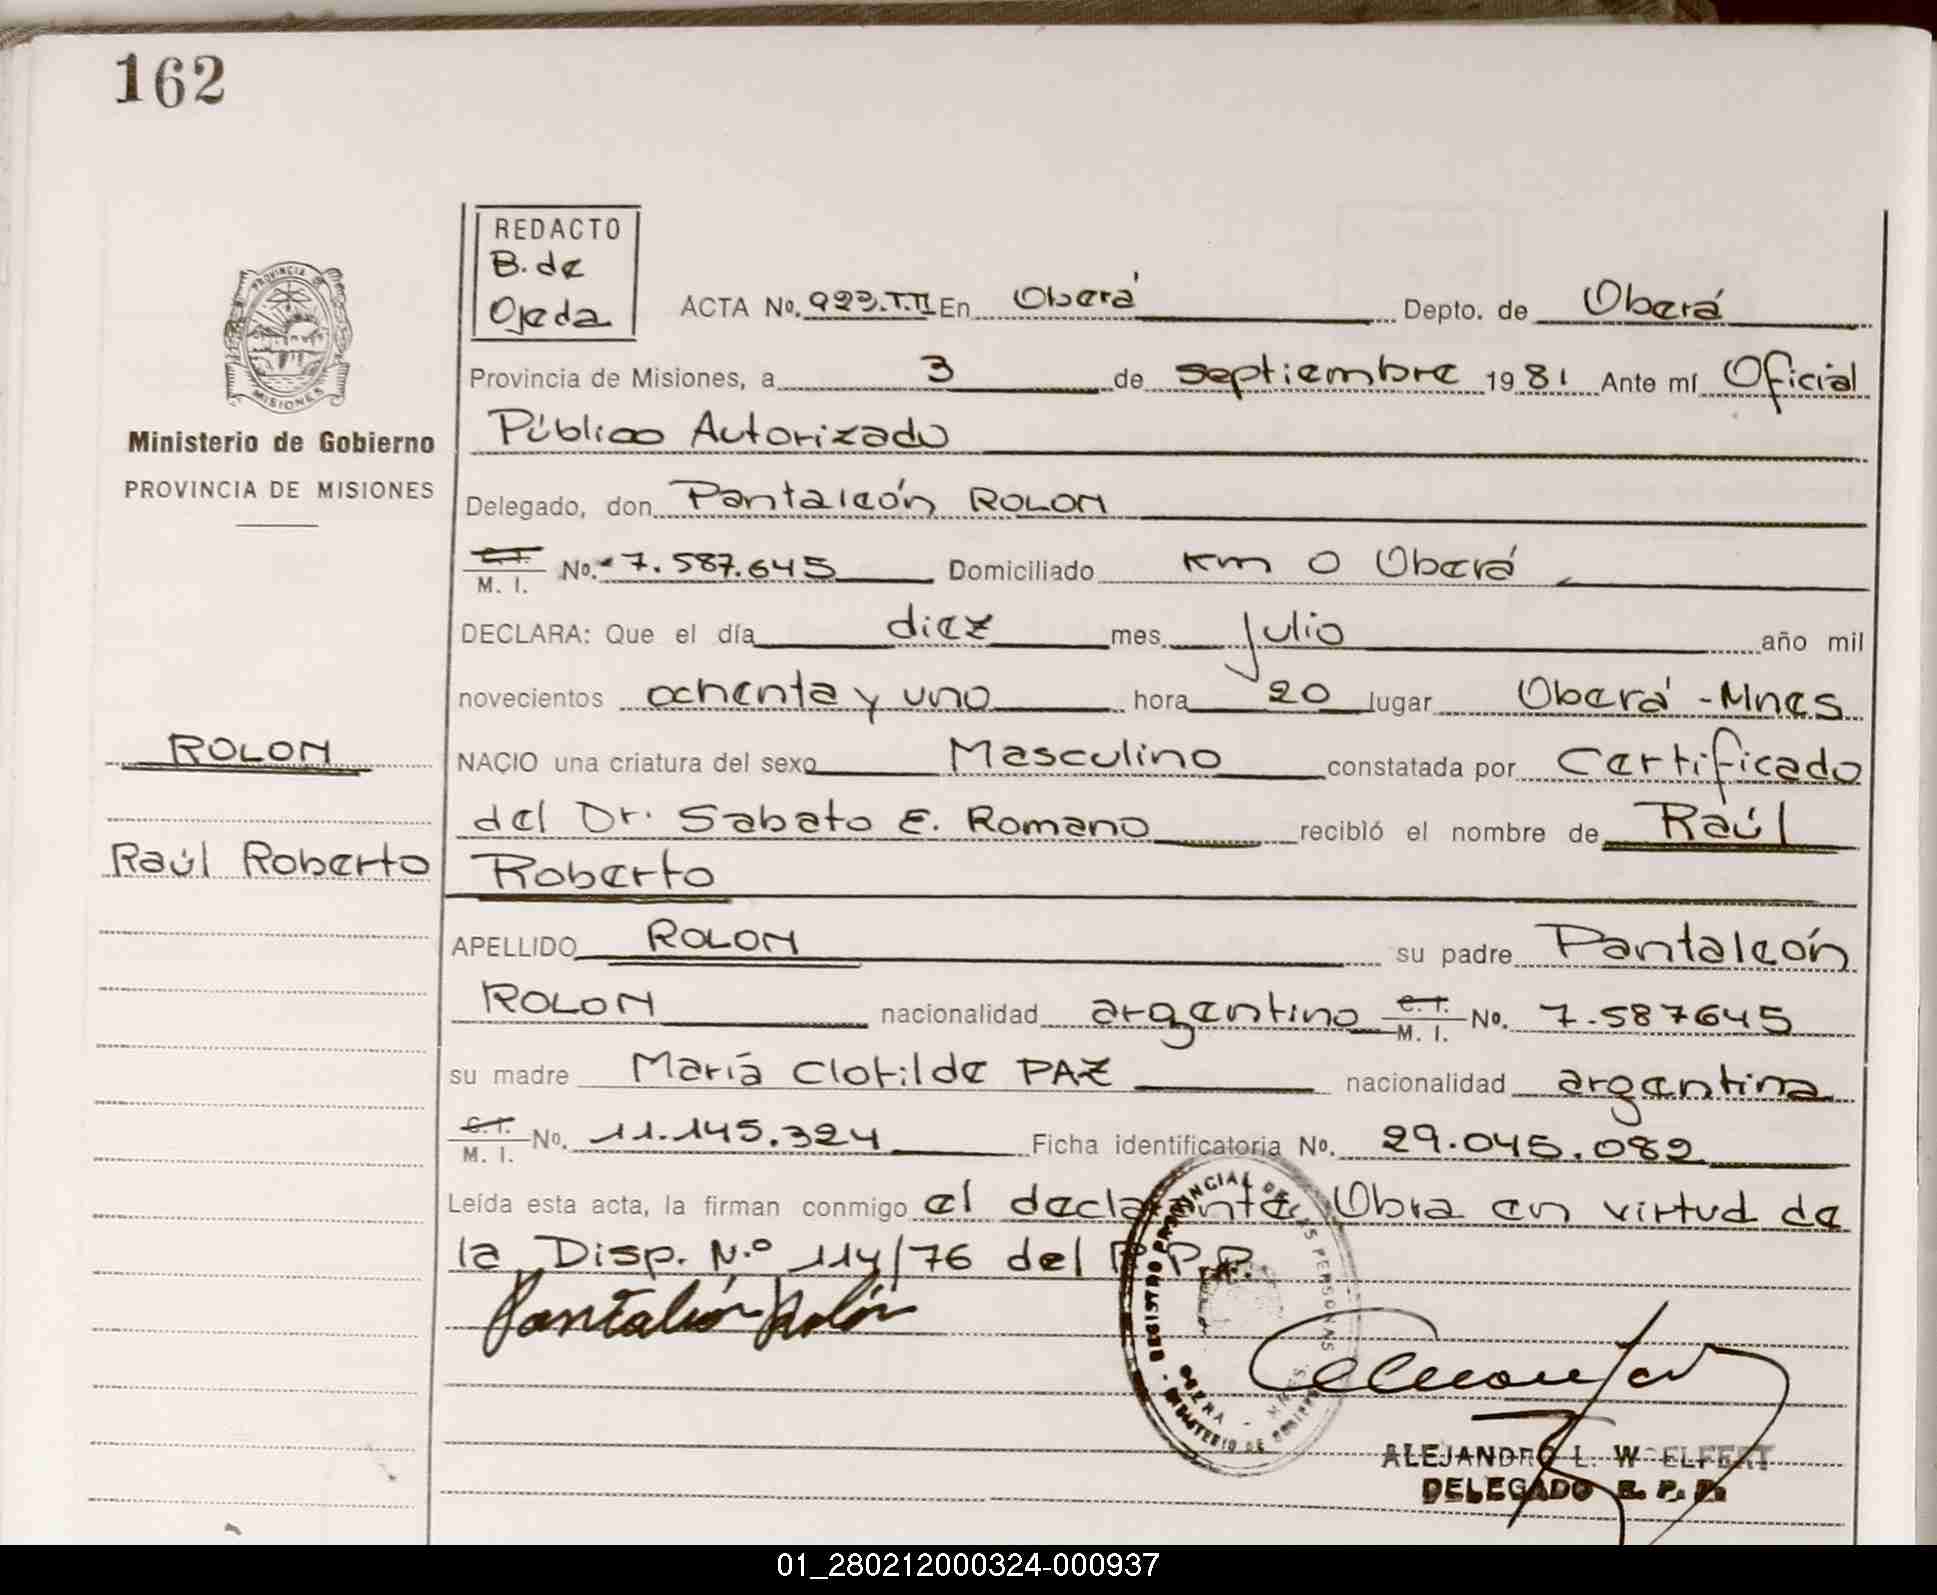 162
REDACTO
B. de
Ojeda
ACTA No. 923.T.II En Oberá Depto. de Oberá
PROVINCIA
MISIONES
Provincia de Misiones, a 3 de septiembre 1981 Ante mí Oficial
Ministerio de Gobierno
PROVINCIA DE MISIONES
Público Autorizado
Delegado, don Pantaleón ROLON
C.I. M. I. No. 7.587.645 Domiciliado Km 0 Oberá
DECLARA: Que el día diez mes julio año mil
novecientos ochenta y uno hora 20 lugar Oberá -Mnes
ROLON
NACIO una criatura del sexo Masculino constatada por Certificado
del Dr. Sabato E. Romano recibió el nombre de Raúl
Raúl Roberto
Roberto
APELLIDO ROLON su padre Pantaleón
ROLON nacionalidad argentino C.I. M. I. No. 7.587645
su madre María Clotilde PAZ nacionalidad argentina
C.I. M. I. No. 11.145.324 Ficha identificatoria No. 29.045.082
Leída esta acta, la firman conmigo el declarante. Obra en virtud de
la Disp. N.º 114/76 del R.P.P.
Pantaleón Rolón
REGISTRO PROVINCIAL DE LAS PERSONAS
OBERA - MNES.
MINISTERIO DE GOBIERNO
ALEJANDRO L. WOELFERT
DELEGADO R. P. P.
01_280212000324-000937